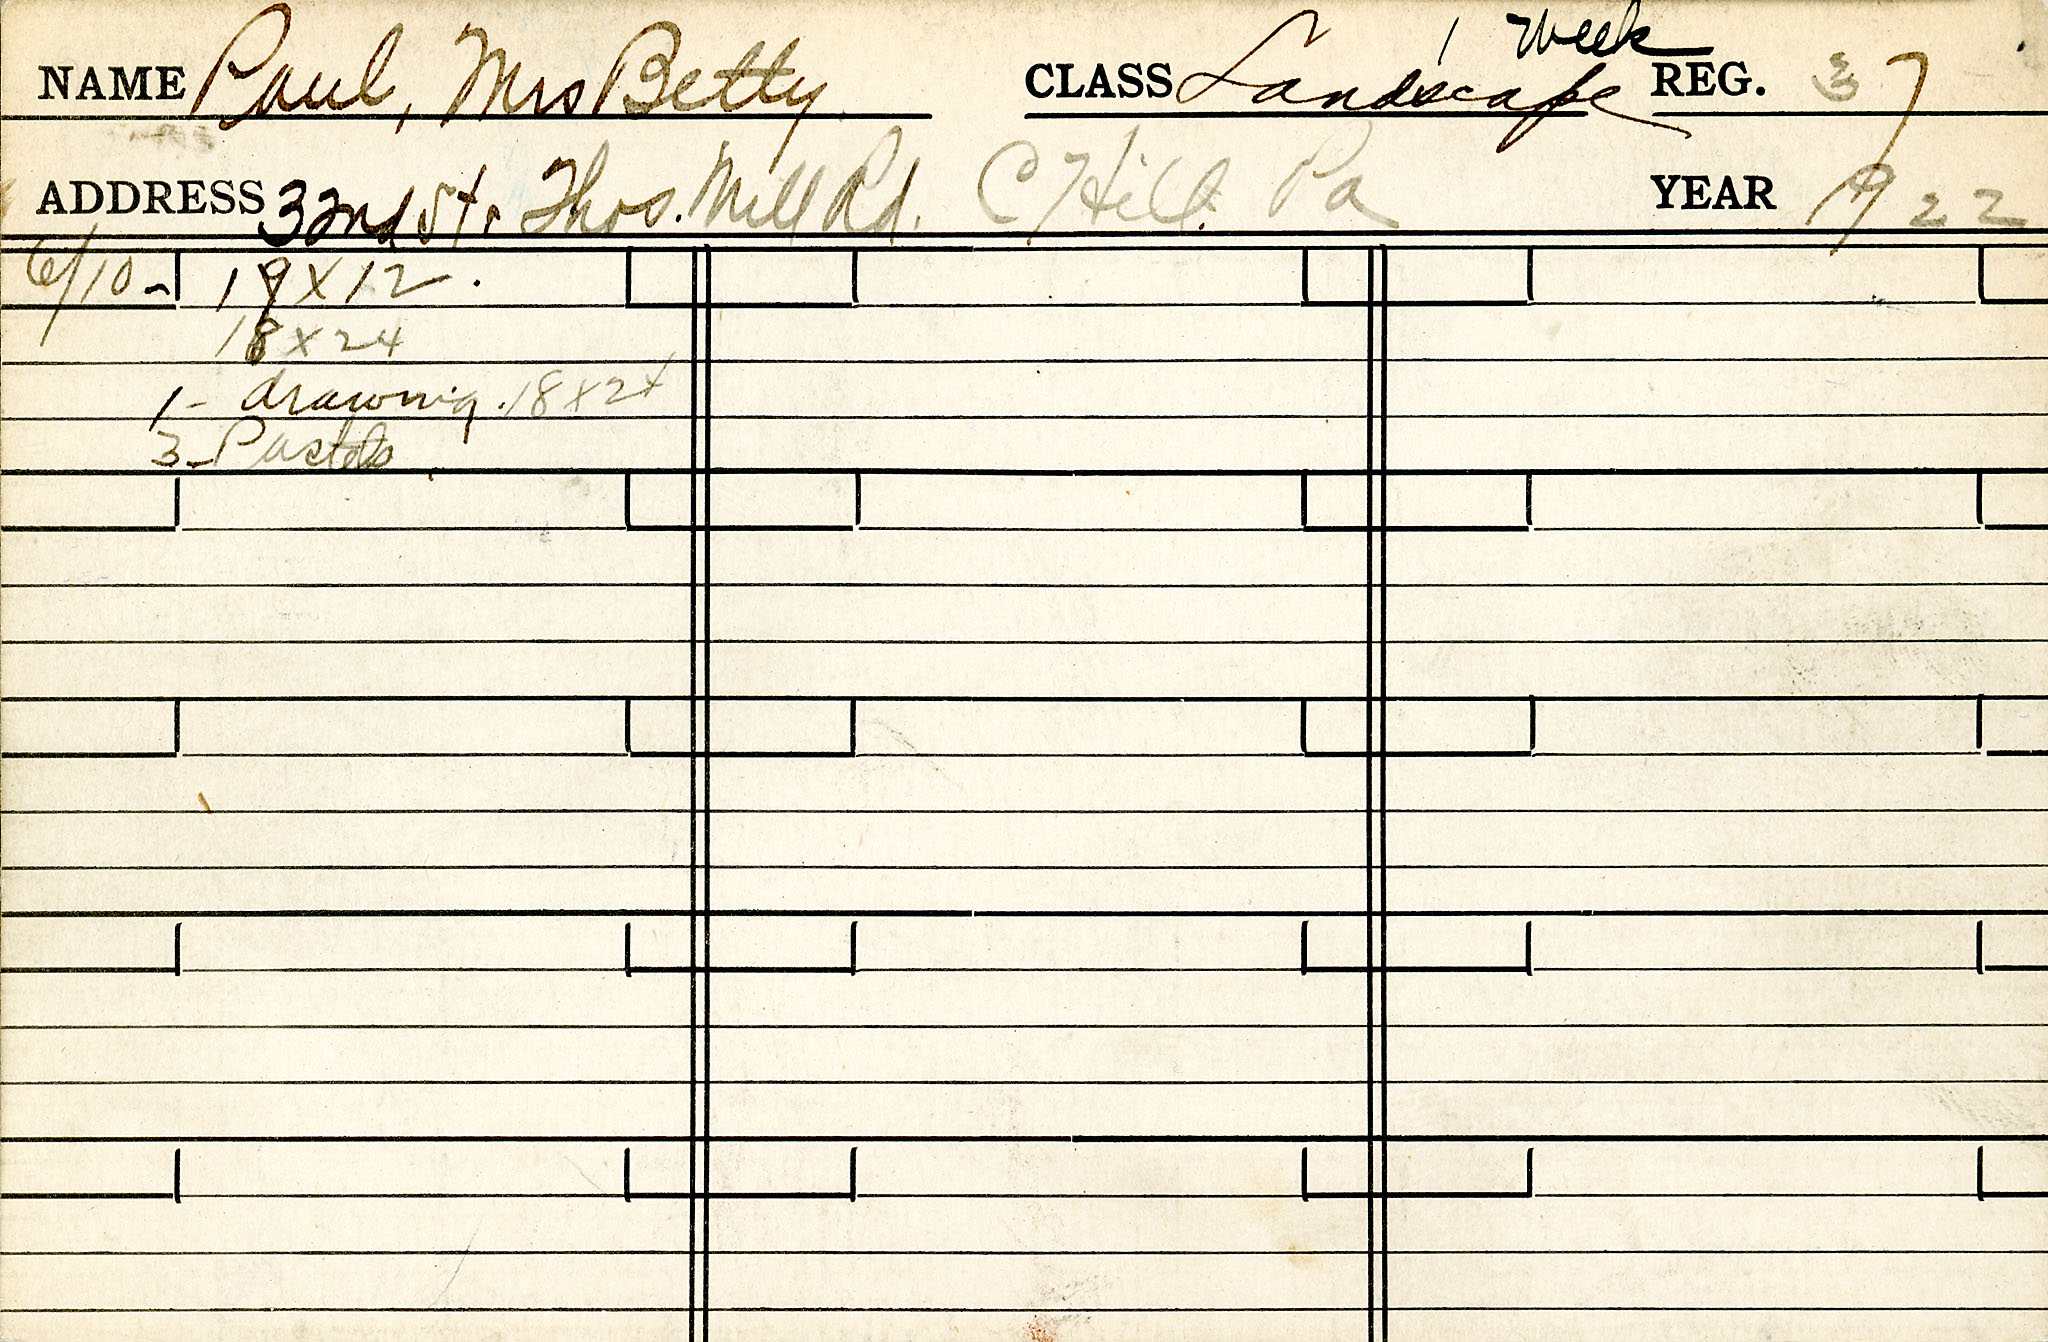 NAME Paul, Mrs Betty CLASS Landscape 1 Week REG. 37
ADDRESS 32nd St. Thos. Mill Rd. C Hill. Pa YEAR 1922
6/10 - 19 x 12.
18 x 24
1 - drawing. 18 x 24
3 - Pastels